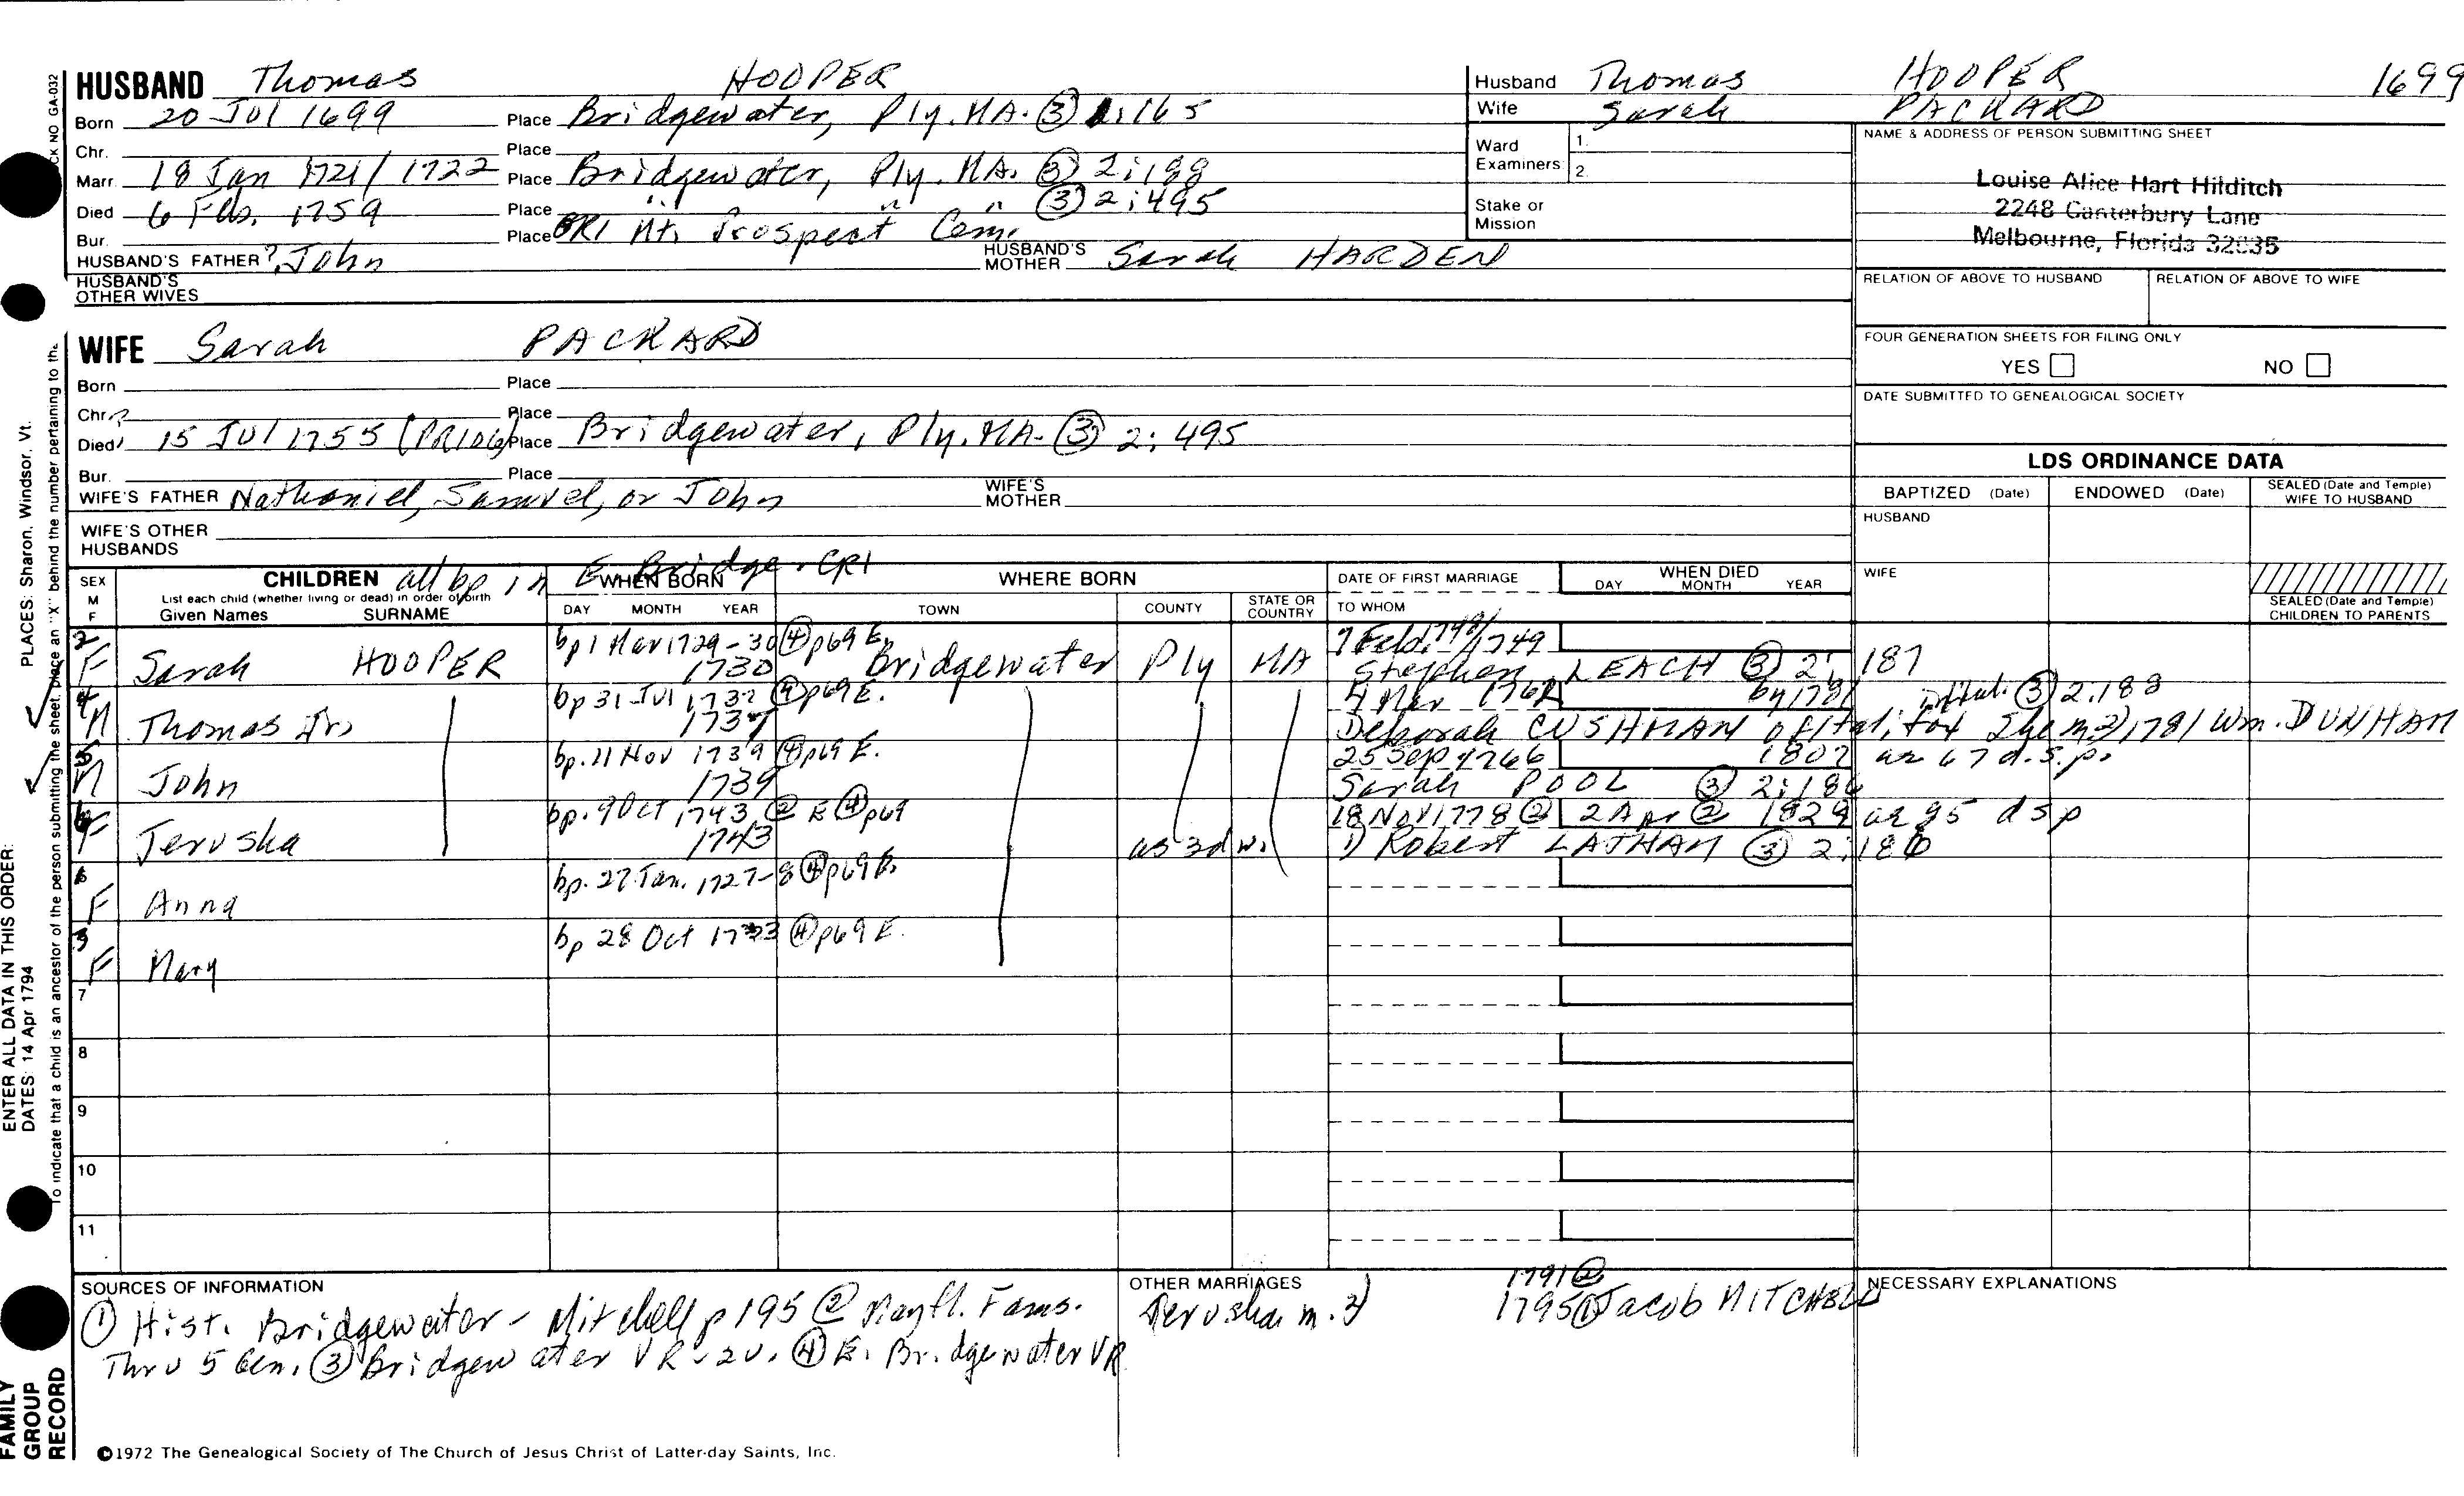 HUSBAND Thomas HOOPER
Born 20 Jul 1699 Place Bridgewater, Ply. MA. ③ 1:165
Chr. Place
Marr. 18 Jan 1721/1722 Place Bridgewater, Ply. MA. ③ 2:188
Died 6 Feb. 1759 Place " " " ③ 2:495
Bur. Place GR1 Mt. Prospect Cem.
HUSBAND'S FATHER ? John HUSBAND'S MOTHER Sarah HARDEN
HUSBAND'S OTHER WIVES
WIFE Sarah PACKARD
Born Place
Chr. ? Place
Died 15 Jul 1755 (PR106) Place Bridgewater, Ply. MA. ③ 2:495
Bur. Place
WIFE'S FATHER Nathaniel, Samuel, or John WIFE'S MOTHER
WIFE'S OTHER HUSBANDS
Husband Thomas HOOPER 1699
Wife Sarah PACKARD
Ward Examiners: 1.
2.
Stake or Mission
NAME & ADDRESS OF PERSON SUBMITTING SHEET
Louise Alice Hart Hilditch
2248 Canterbury Lane
Melbourne, Florida 32935
RELATION OF ABOVE TO HUSBAND RELATION OF ABOVE TO WIFE
FOUR GENERATION SHEETS FOR FILING ONLY
YES NO
DATE SUBMITTED TO GENEALOGICAL SOCIETY
LDS ORDINANCE DATA
BAPTIZED (Date) ENDOWED (Date) SEALED (Date and Temple) WIFE TO HUSBAND
HUSBAND
WIFE
SEALED (Date and Temple) CHILDREN TO PARENTS
SEX M F
CHILDREN all bp in E Bridge. CR1
List each child (whether living or dead) in order of birth
Given Names SURNAME
WHEN BORN
DAY MONTH YEAR
WHERE BORN
TOWN COUNTY STATE OR COUNTRY
DATE OF FIRST MARRIAGE
TO WHOM
WHEN DIED
DAY MONTH YEAR
2 bp 1 Mar 1729-30 ④ p69 E. 7 Feb. 1748/1749
F Sarah HOOPER 1730 Bridgewater Ply MA Stephen LEACH ③ 2:187
4 bp 31 Jul 1737 ④ p69 E. 4 Mar 1762 by 1781 ③ 2:188
M Thomas Jr. 1737 Deborah CUSHMAN of Hal, fax She m 2) 1781 Wm. DUNHAM
5 bp. 11 Nov 1739 ④ p69 E. 25 Sep 1766 1807 ae 67 d.s.p.
M John 1739 Sarah POOL ③ 2:186
6 bp. 9 Oct 1743 ② E ④ p69 18 Nov 1778 ② 2 Apr ② 1829 ae 85 dsp
F Jerusha 1743 as 3d w. 1) Robert LATHAM ③ 2:186
bp. 27 Jan. 1727-8 ④ p69 E.
F Anna
3 bp 28 Oct 1733 ④ p69 E.
F Mary
7
8
9
10
11
SOURCES OF INFORMATION
① Hist. Bridgewater - Mitchell p 195 ② Mayfl. Fams.
Thru 5 Gen. ③ Bridgewater VR - 2v. ④ E. Bridgewater VR
OTHER MARRIAGES
1791 ②
Jerusha m. 2) 1795 ① Jacob MITCHELL
NECESSARY EXPLANATIONS
©1972 The Genealogical Society of The Church of Jesus Christ of Latter-day Saints, Inc.
FAMILY GROUP RECORD
ENTER ALL DATA IN THIS ORDER:
DATES: 14 Apr 1794 PLACES: Sharon, Windsor, Vt.
To indicate that a child is an ancestor of the person submitting the sheet, place an "X" behind the number pertaining to the
CK NO GA-032